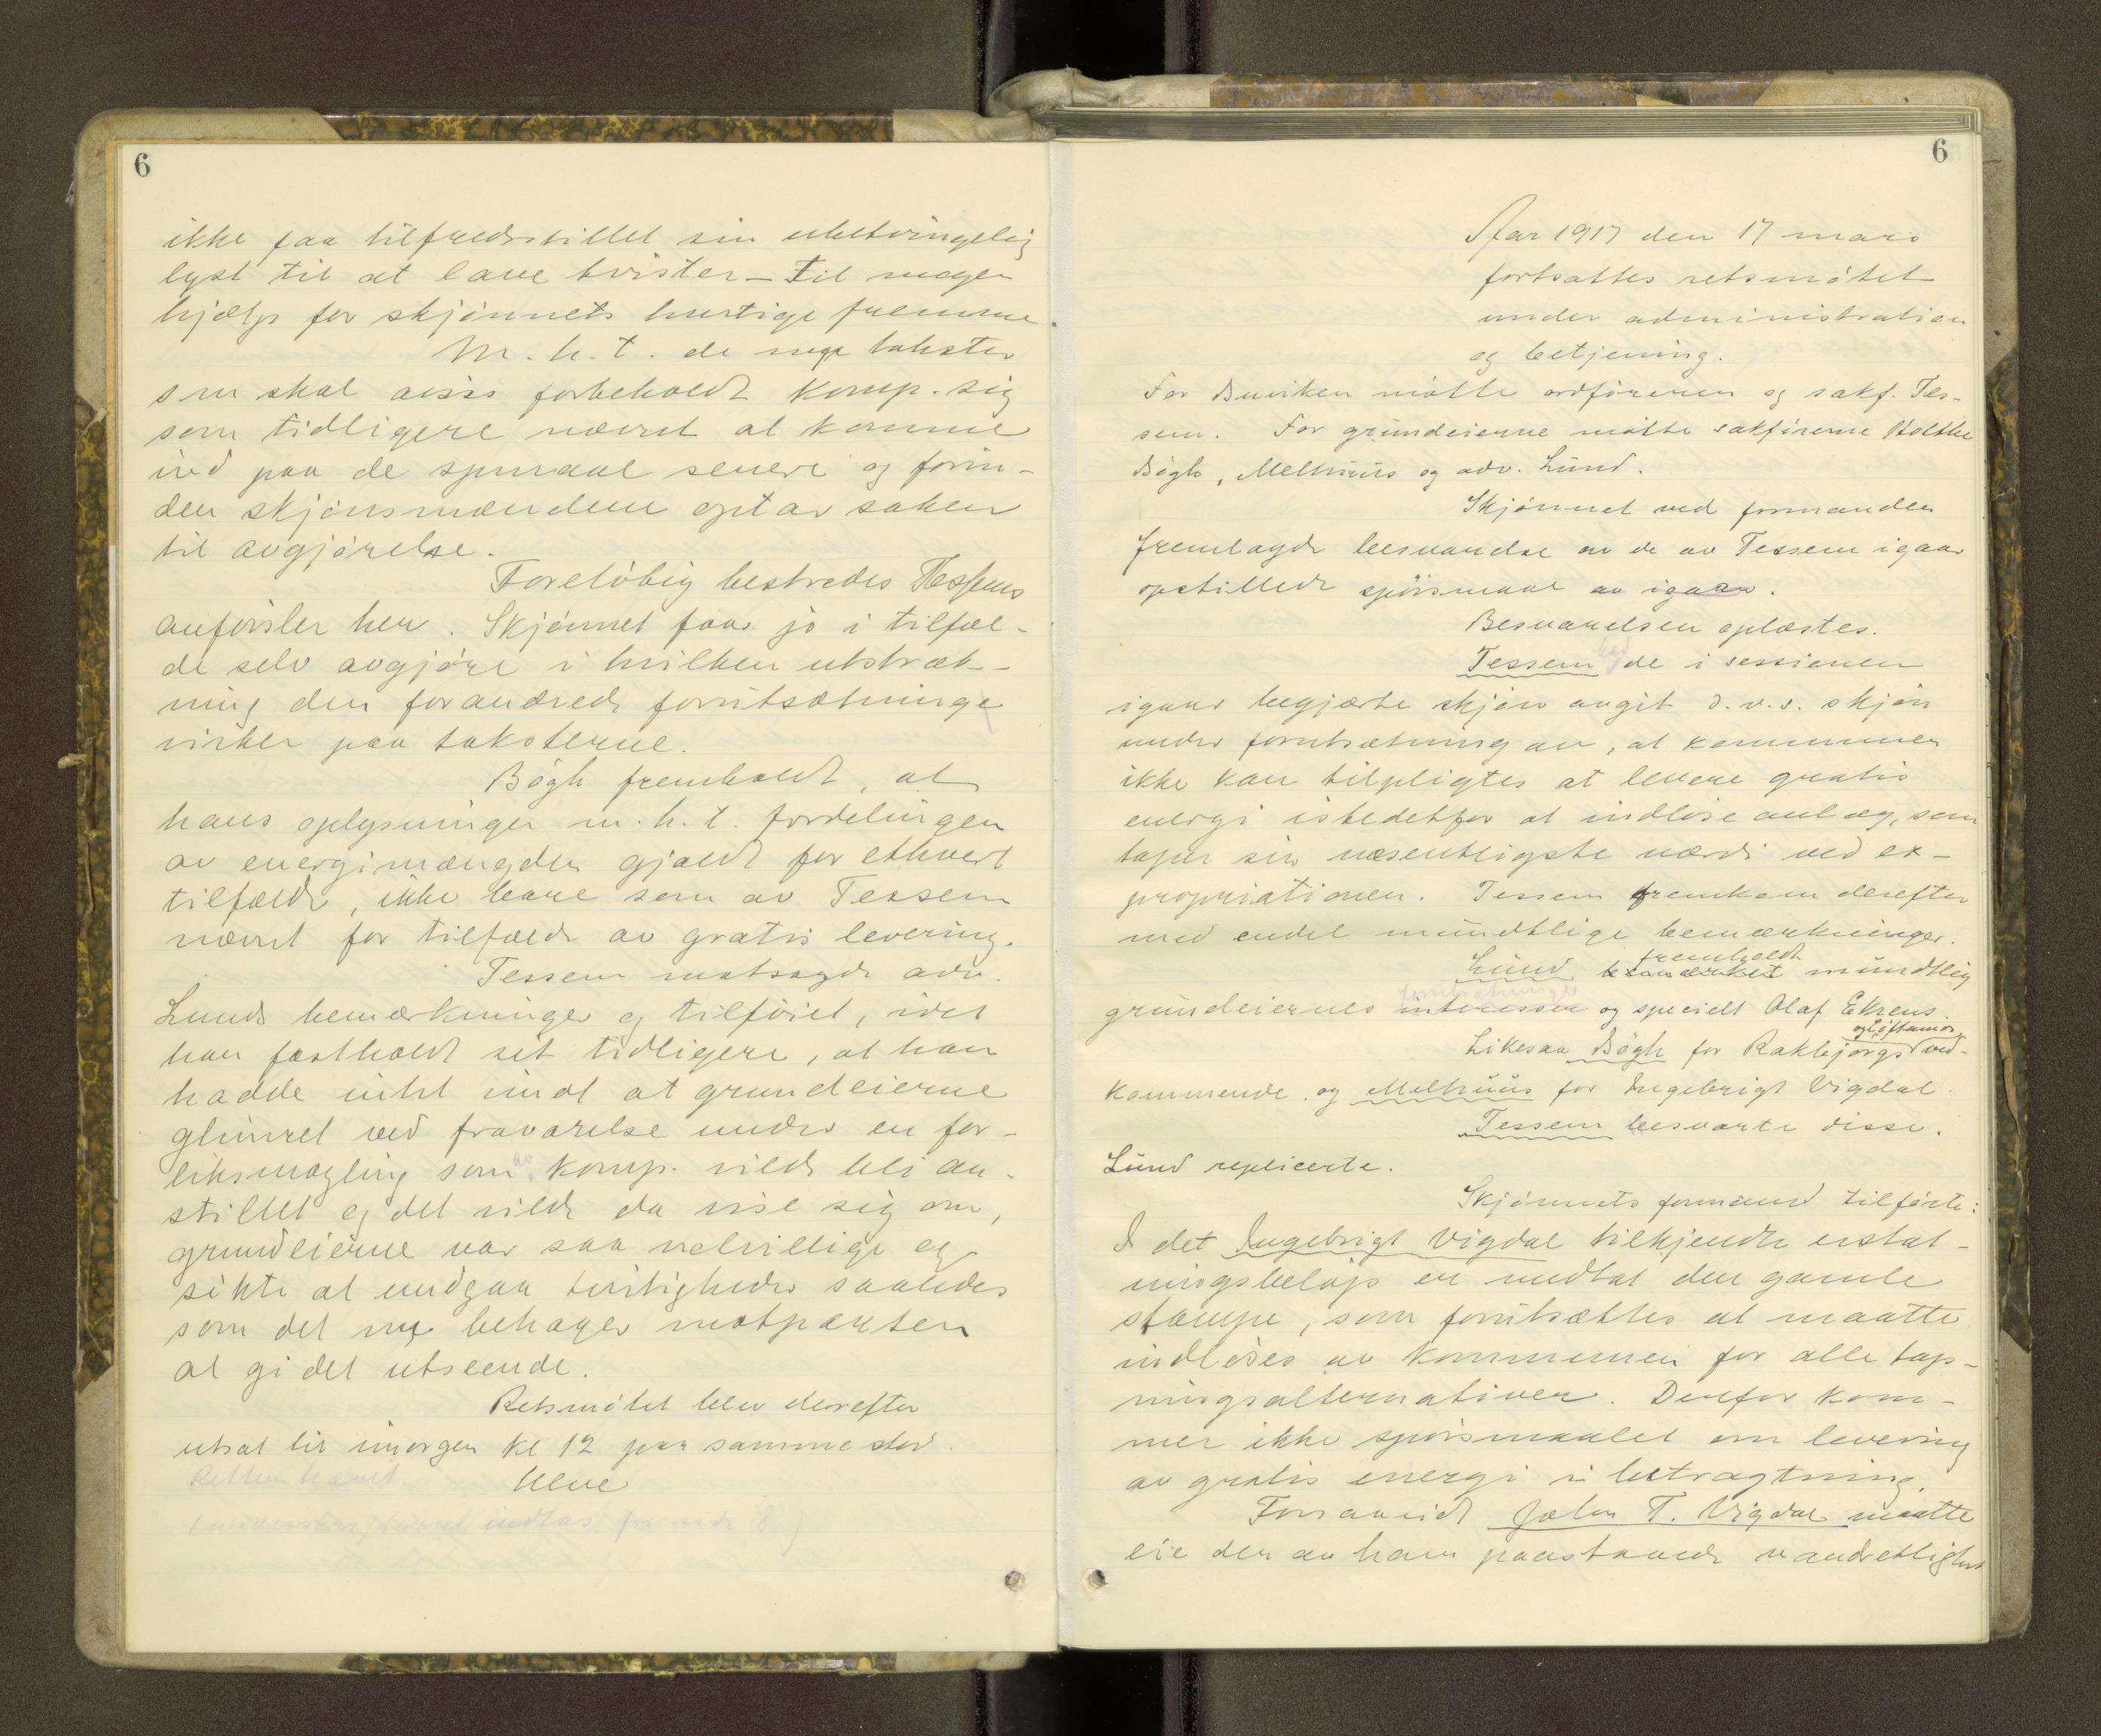 6
ikke faa tilfredsstillet sin ubetvingelig
lyst til at lave tvister – til megen
hjælp for skjønnets hurtige fremme.
M. h. t. de nye takster
som skal avsis forbeholdt komp. sig
som tidligere nævnt at komme
ind paa de spørsmaal senere og forin-
den skjønsmændene optar saken
til avgjørelse.
Foreløbig bestredes Tessems
anførsler her. Skjønnet faar jo i tilfæl-
de selv avgjøre i hvilken utstræk-
ning den forandrede forutsætninge
virker paa taksterne.
Bøgh fremholdt, at
hans oplysninger m. h. t. fordelingen
av energimængden gjaldt for ethvert
tilfælde, ikke bare som av Tessem
nævnt for tilfælde av gratis levering.
Tessem motsagde adv.
Lunds bemærkninger og tilføiet, idet
han fastholdt sit tidligere, at han
hadde intet imot at grundeierne
glimret ved fraværelse under en for-
liksmægling som av komp. vilde bli an-
stillet og det vilde da vise sig om,
grundeierne var saa velvillige og
søkte at undgaa tvistigheder saaledes
som det nu behager motparten
at gi det utseende.
Retsmøtet blev derefter
utsat til imorgen kl 12 paa samme sted.
Retten hævet.
Ulve
indtas
6
Aar 1917 den 17 mars
fortsattes retsmøtet
under administration
og betjening.
For Buviken møtte ordføreren og sakf. Tes-
sem. For grundeierne møtte sakførerne Holthe
Bøgh, Melhuus og adv. Lund.
Skjønnet ved formanden
fremlagde besvarelse av de av Tessem igaar
opstillede spørsmaal av igaar.
Besvarelsen oplæstes.
Tessem had de i sessionen
igaar begjærte skjøn avgit d. v. s. skjøn
under forutsætning av, at kommunen
ikke kan tilpligtes at levere gratis
energi istedetfor at indløse anlæg, som
taper sin væsentligste værdi ved ex-
propriationen. Tessem fremkom derefter
med endel mundtlige bemærkninger.
Lund bemærket fremholdt mundtlig
grundeiernes interesser forutsætninger og specielt Olaf Ekrens.
Likesaa Bøgh for Rakbjørgs og Løftamos ved-
kommende og Melhuus for Ingebrigt Vigdal.
Tessem besvarte disse.
Lund replicerte.
Skjønnets formand tilførte:
I det Ingebrigt Vigdal tilkjendte erstat-
ningsbeløp er medtat den gamle
stampe, som forutsættes at maatte
indløses av kommunen for alle tap-
ningsalternativer. Derfor kom-
mer ikke spørsmaalet om levering
av gratis energi i betragtning.
Forsaavidt John T. Vigdal maatte
eie den av ham paastaaede vandrettighet